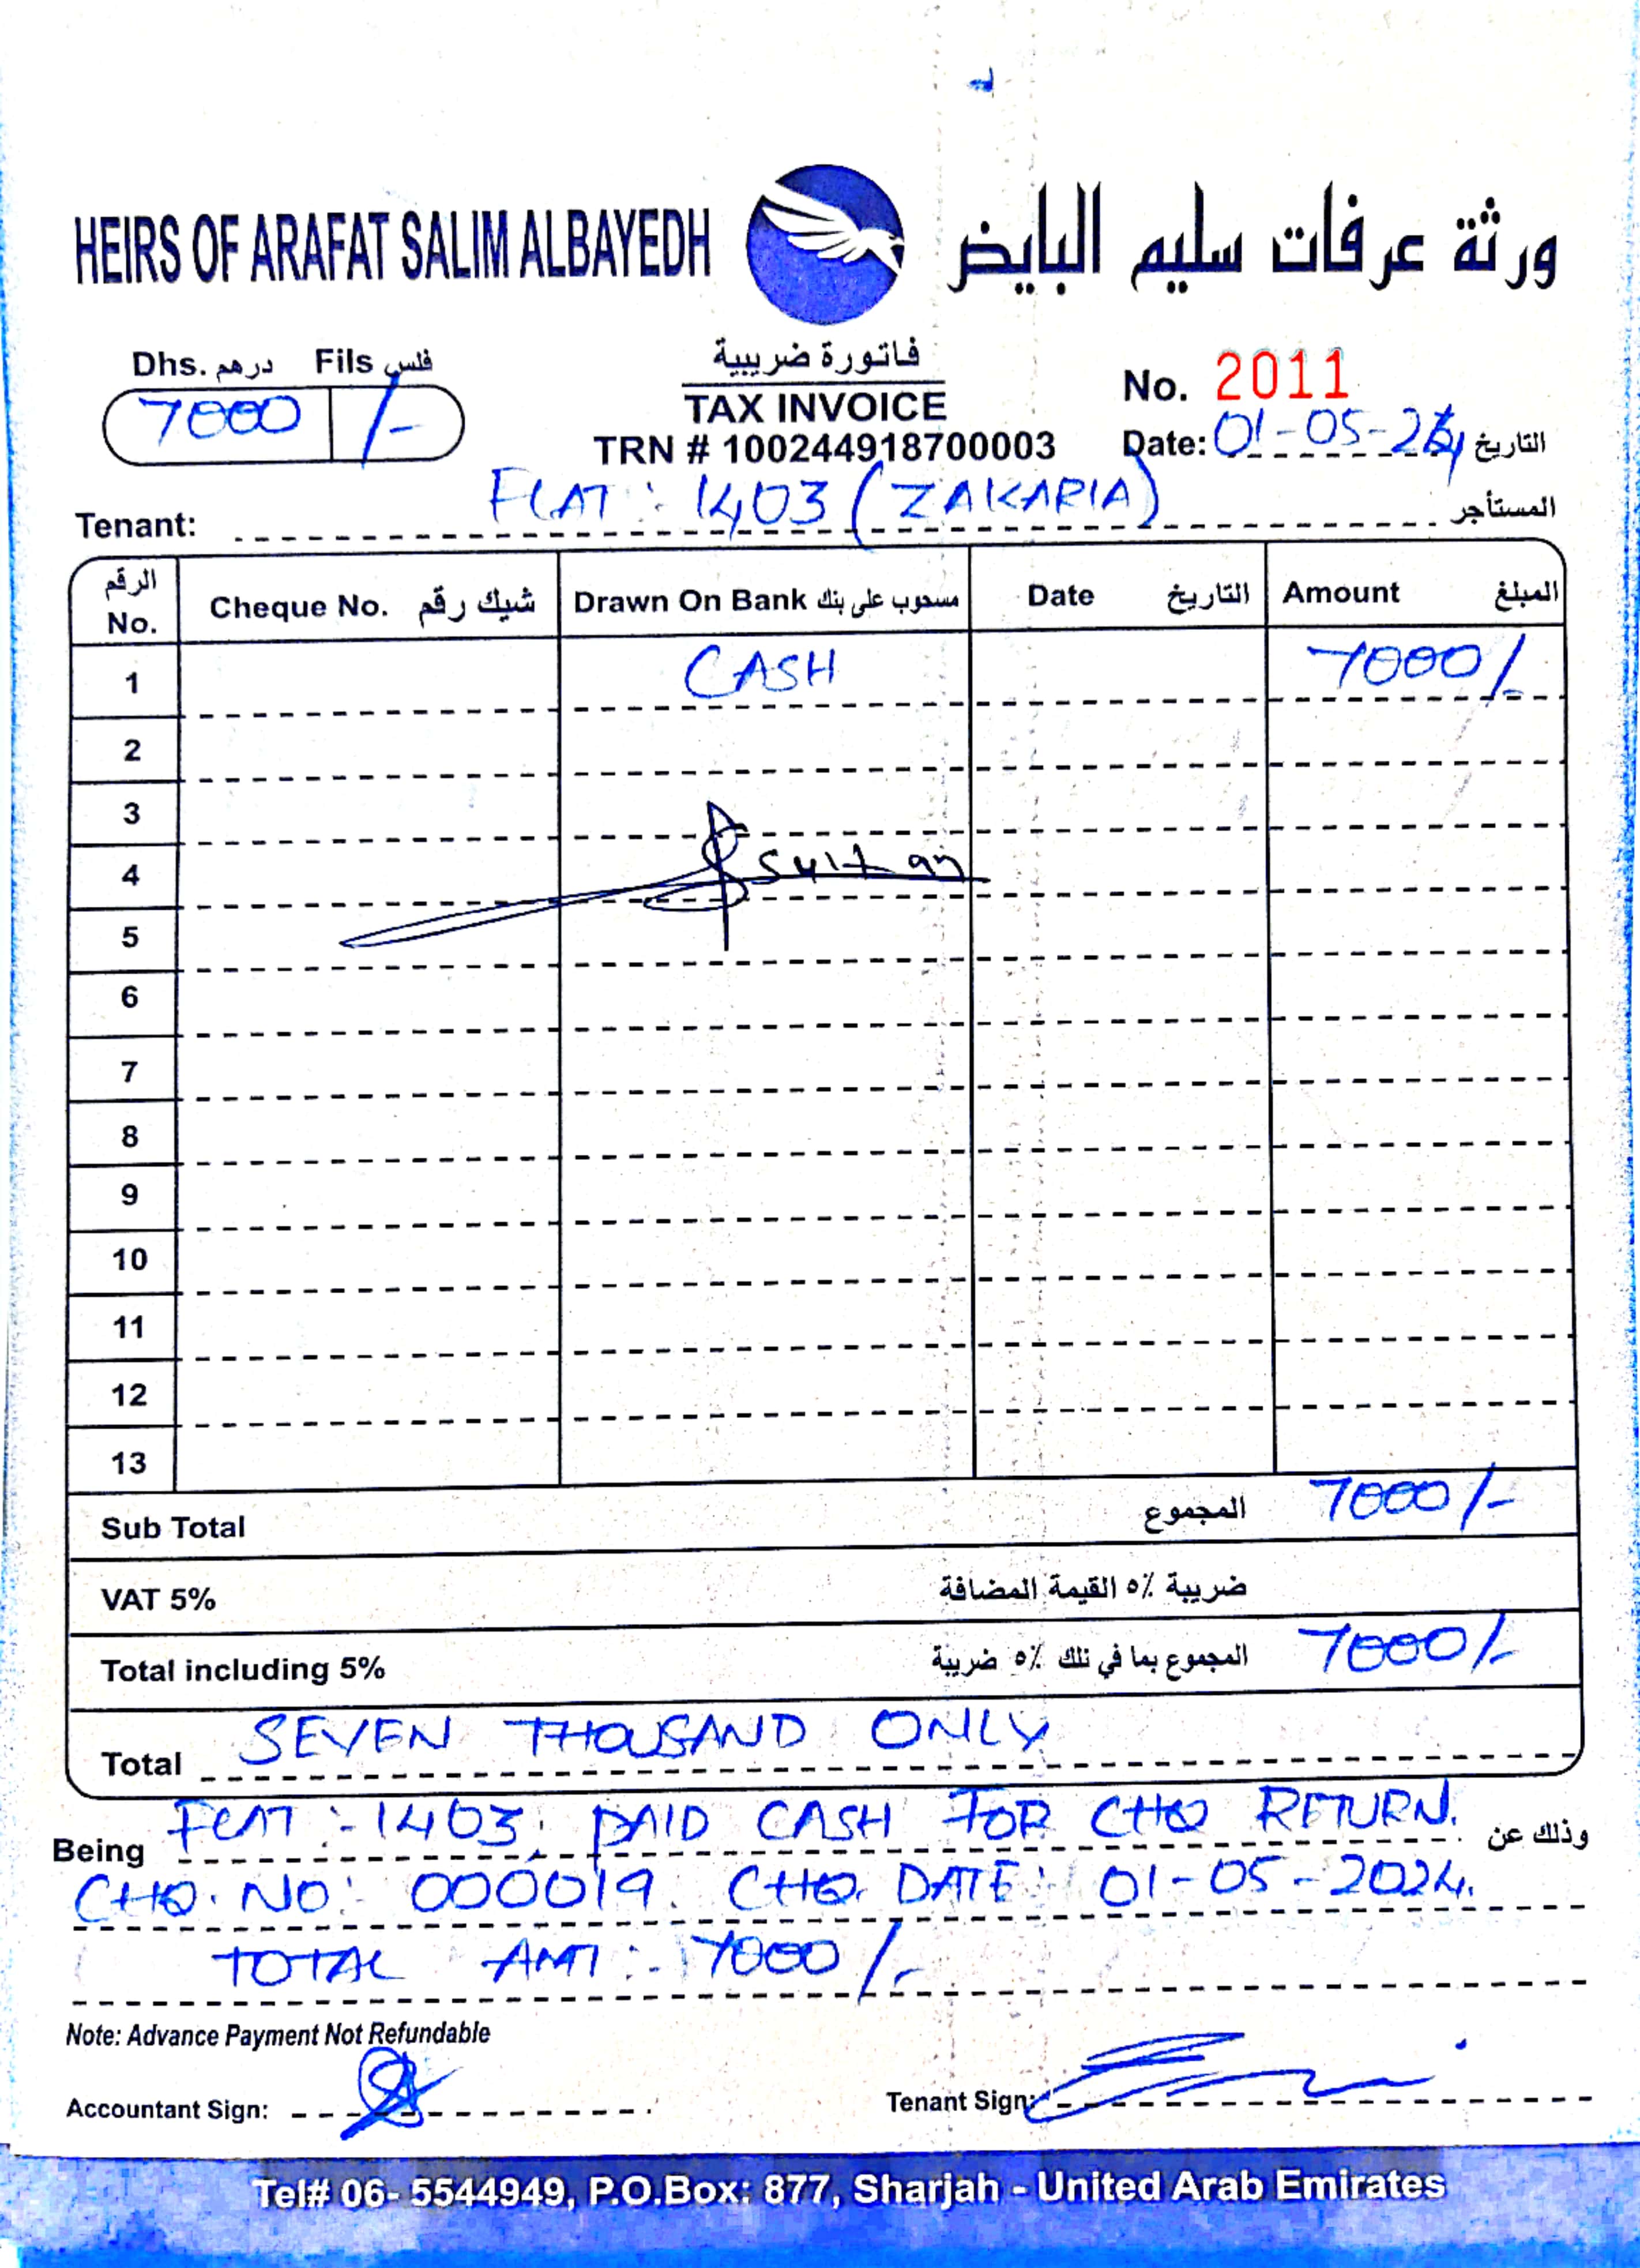 HEIRS OF ARAFAT SALIM ALBAYEDH ورثة عرفات سليم البايض
Dhs. درهم Fils فلس
7000 /-
فاتورة ضريبية
TAX INVOICE
TRN # 100244918700003
No. 2011
Date: 01-05-24 التاريخ
Tenant: FLAT : 1403 (ZAKARIA) المستأجر
الرقم No. Cheque No. شيك رقم Drawn On Bank مسحوب على بنك Date التاريخ Amount المبلغ
1 CASH 7000/-
2
3
4 Sultan
5
6
7
8
9
10
11
12
13
Sub Total المجموع 7000/-
VAT 5% ضريبة ٥٪ القيمة المضافة
Total including 5% المجموع بما في ذلك ٥٪ ضريبة 7000/-
Total SEVEN THOUSAND ONLY
Being FLAT :- 1403, PAID CASH FOR CHQ RETURN. وذلك عن
CHQ. NO: 000019. CHQ. DATE: 01-05-2024.
TOTAL AMT:- 7000/-
Note: Advance Payment Not Refundable
Accountant Sign: Tenant Sign:
Tel# 06- 5544949, P.O.Box: 877, Sharjah - United Arab Emirates